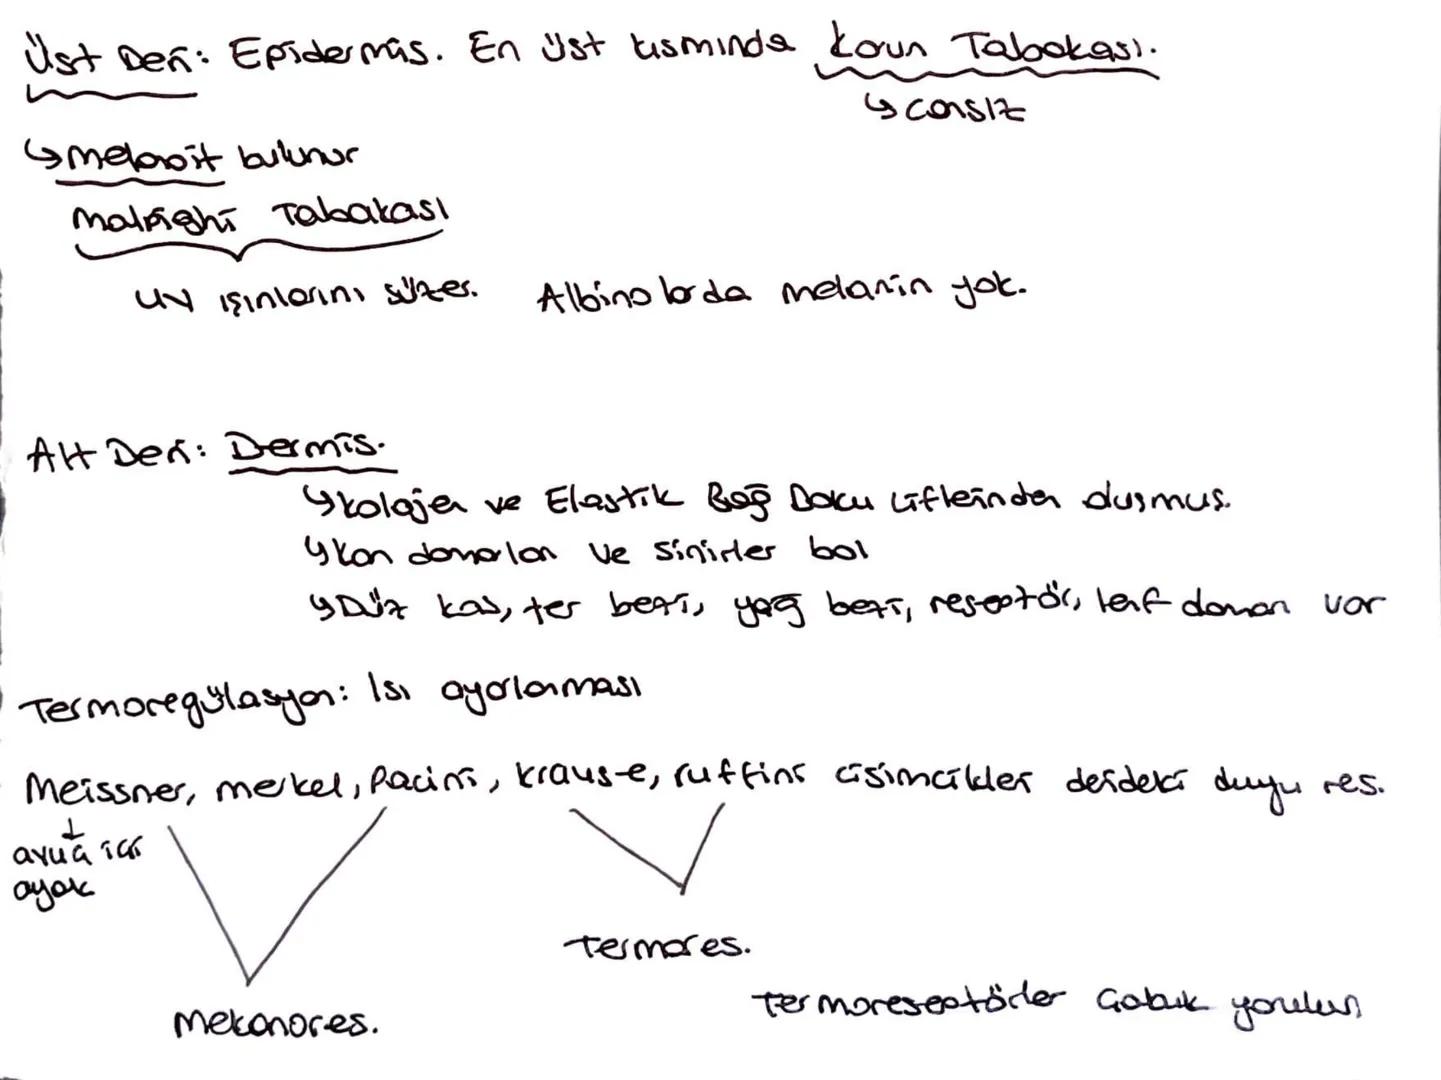 Üst Deri: Epidermis. En üst kısmında korun Tabakası.
↳ cansız
↳ melanosit bulunur
malpighi Tabakası
UV ışınlarını süzer. Albinolarda melanin yok.
Alt Deri: Dermis.
↳ kolajen ve Elastik Bağ Doku liflerinden oluşmuş.
↳ Kan damarları ve sinirler bol
↳ Düz kas, ter bezi, yağ bezi, reseptör, lenf damarı var
Termoregülasyon: Isı ayarlanması
Meissner, merkel, Pacini, krause, ruffini cisimcikleri derideki duyu res.
↓
avuç içi
ayak
Termores.
Mekanores.
Termoreseptörler Çabuk yorulur